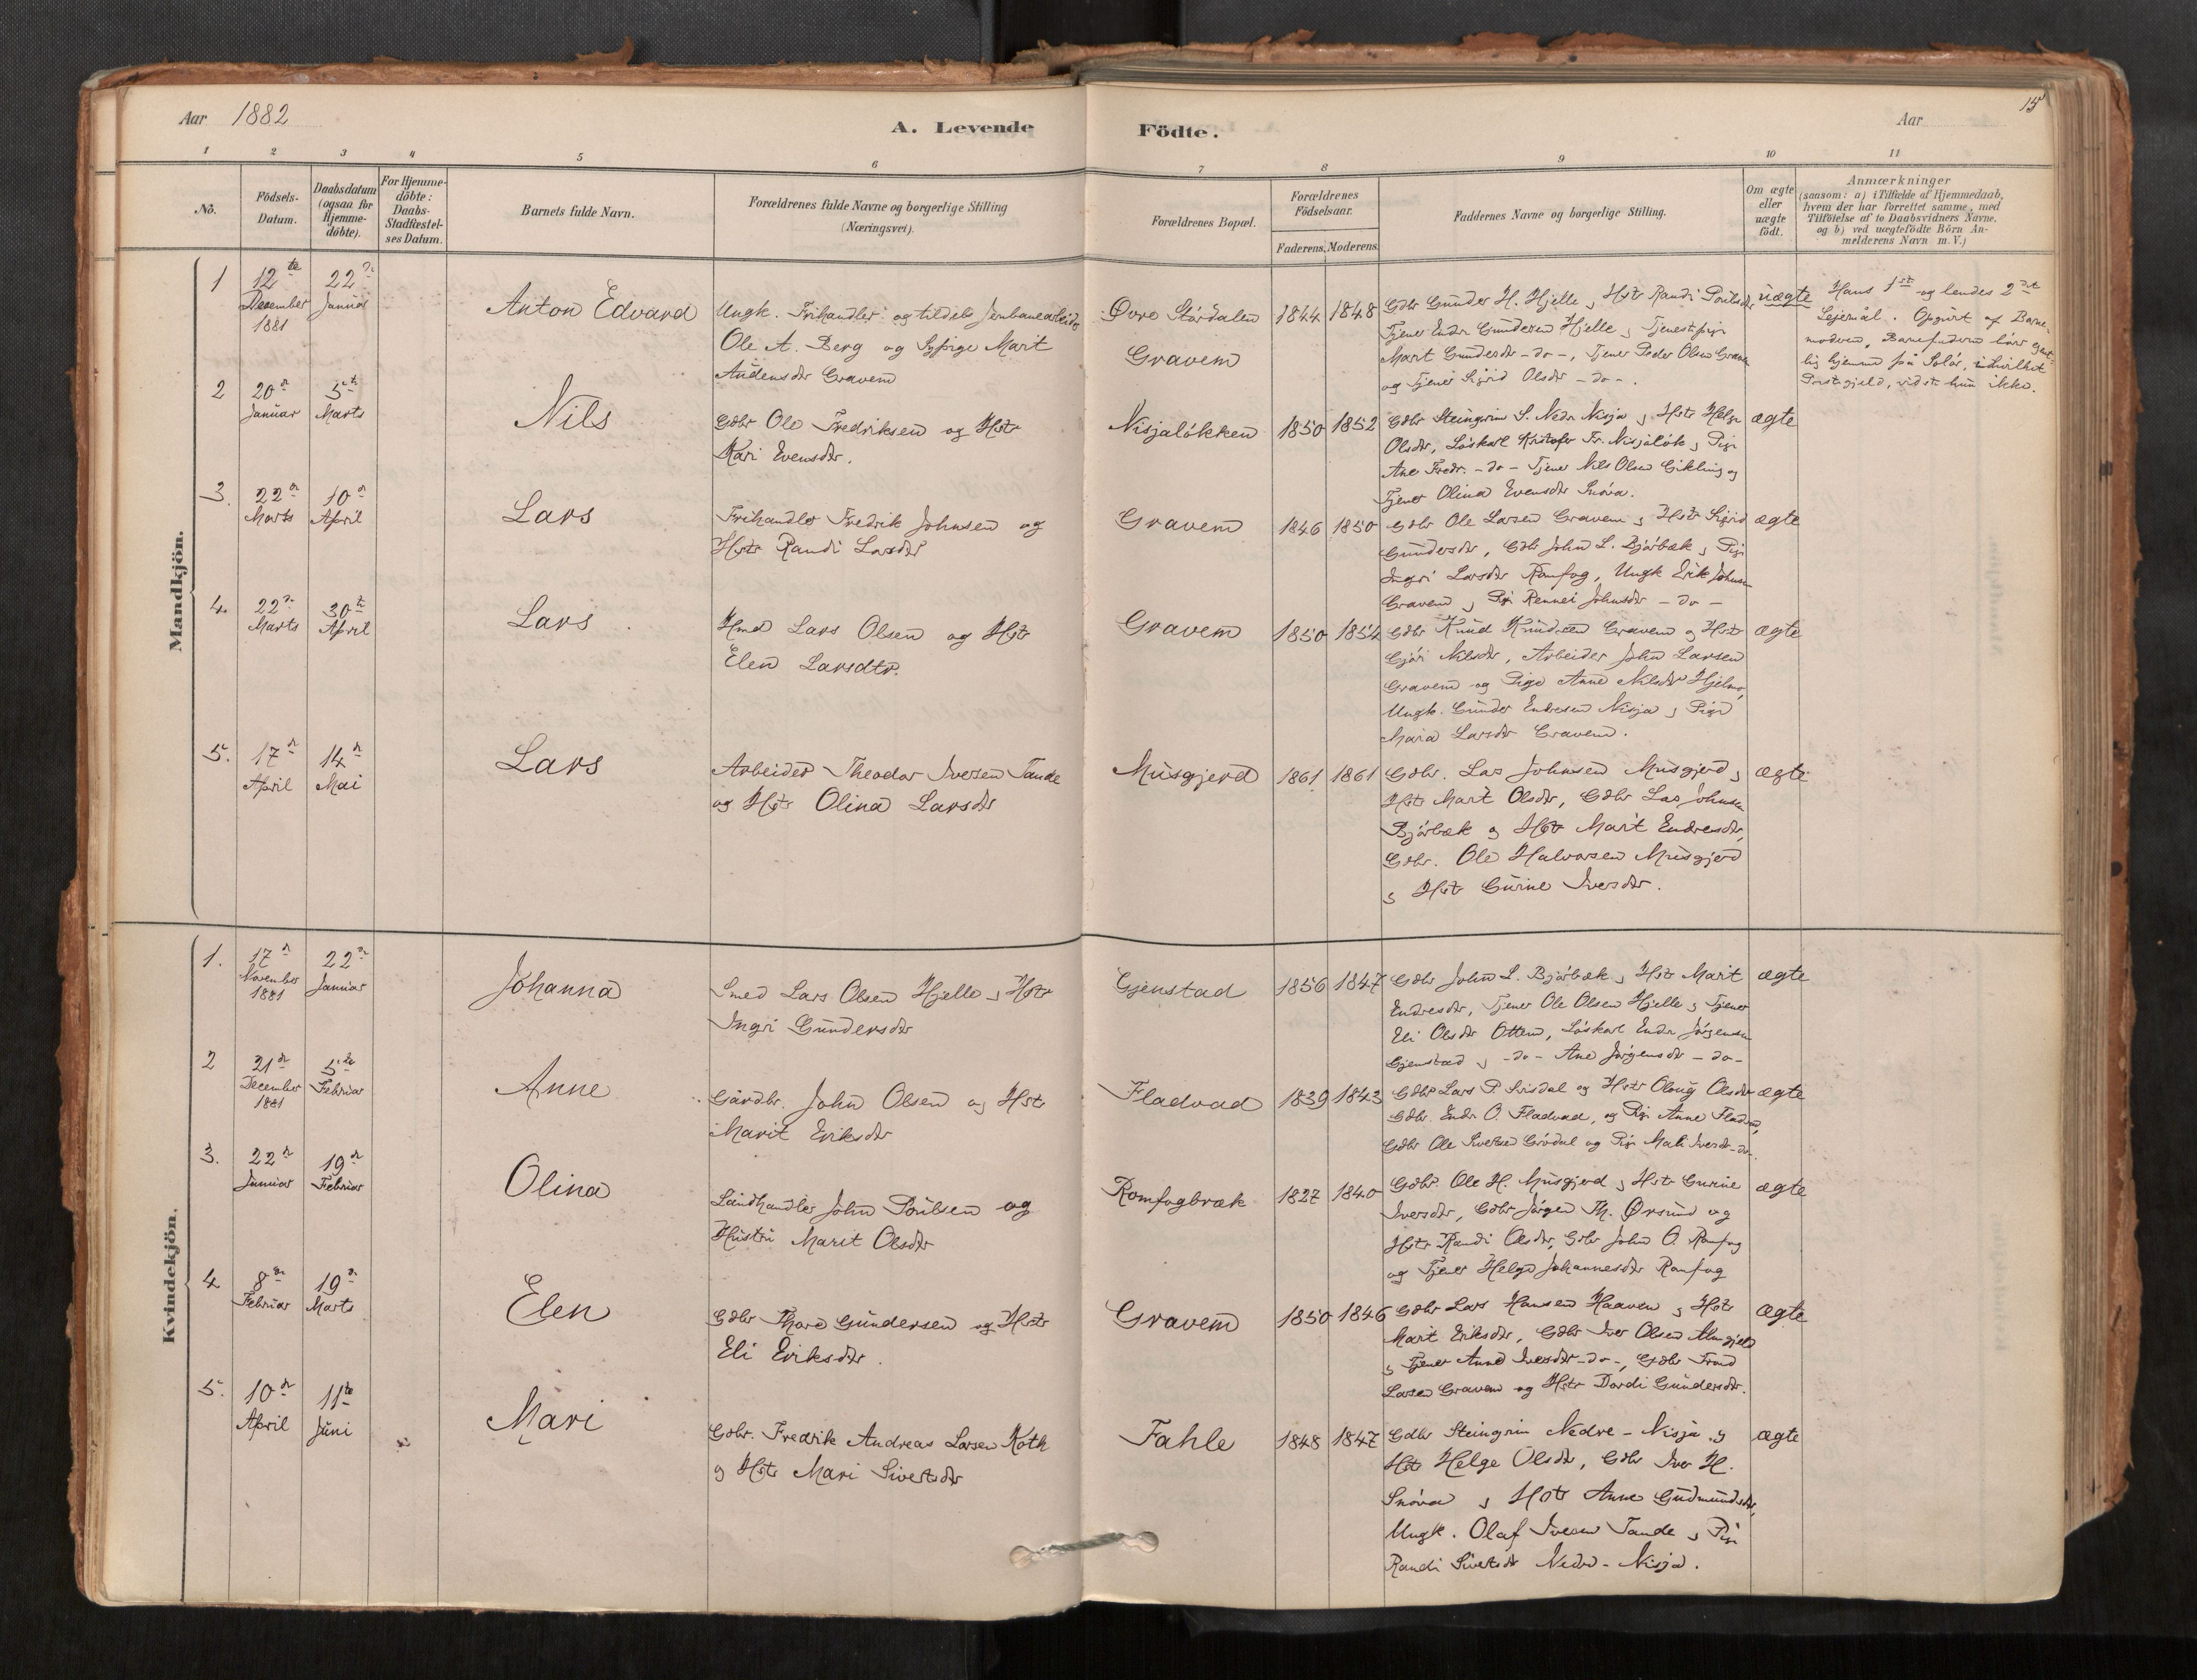 Aar 1882
A. Levende
Födte.
Aar
15
1 2 3 4 5 6 7 8 9 10 11
No.
Födsels-
Datum.
Daabsdatum
(ogsaa for
Hjemme-
döbte).
For Hjemme-
döbte:
Daabs-
Stadfestel-
ses Datum.
Barnets fulde Navn.
Forældrenes fulde Navne og borgerlige Stilling
(Næringsvei).
Forældrenes Bopæl.
Forældrenes
Födselsaar.
Faderens. Moderens.
Faddernes Navne og borgerlige Stilling.
Om ægte
eller
uægte
födt.
Anmærkninger
(saasom: a) i Tilfælde af Hjemmedaab,
hvem der har forrettet samme, med
Tilföielse af to Daabsvidners Navne,
og b) ved uægtefödte Börn An-
melderens Navn m. V.)
Mandkjön.
1
12te
December
1881
22de
Januar
Anton Edvard
Ungk. Frihandler og tildels Jernbanearbeider
Ole A. Berg og Pige Marit
Audensdtr Gravem
Øvre Stördalen
Gravem
1844 1848
Gdbr Gunder H. Hjelle, Hstr Randi Poulsdtr
Tjener Endr Gundersen Hjelle, Tjenestpige
Marit Gundersdtr -do-, Tjener Peder Olsen Gravem
og Tjener Sigrid Olsdtr -do-.
uægte
Hans 1ste og hendes 2det
Leiermål. Opgivt af Barne-
moderen, Barnefaderen
hjemme på Solör, i hvilket
Præstgjeld, vidste hun ikke.
2
20n
Januar
5te
Marts
Nils
Gdbr Ole Fredriksen og Hstr
Kari Evensdtr.
Nisjalökken
1850 1852
Gdbr Steingrim S. Nedr Nisja, Hstr Helge
Olsdtr, Löskarl Kristofer Fr. Nisjalök, Pige
Ane Fredr. -do- Tjener Nils Olsen Gikling og
Tjener Olina Evensdtr Snöva.
ægte
3.
22n
Marts
10n
April
Lars
Frihandler Fredrik Johnsen og
Hstr Randi Larsdtr
Gravem
1846 1850
Gdbr Ole Larsen Gravem, Hstr Sigrid
Gundersdtr, Gdbr John L. Bjørbæk, Pige
Ingri Larsdtr Romfog, Ungk Erik Johnsen
Gravem, Pige Rennei Johnsdtr -do-
ægte
4.
22n
Marts
30te
April
Lars
Hmd Lars Olsen og Hstr
Elen Larsdtr.
Gravem
1850 1854
Gdbr Knud Knudsen Gravem og Hstr
Gjöri Nilsdtr, Arbeider John Larsen
Gravem og Pige Anne Nilsdtr Hjelmo,
Ungk. Gunder Endresen Nisja, Pige
Maria Larsdtr Gravem.
ægte
5.
17n
April
14n
Mai
Lars
Arbeider Theodor Iversen Tande
og Hstr Olina Larsdtr
Musgjerd
1861 1861
Gdbr. Lars Johnsen Musgjerd,
Hstr Marit Olsdtr, Gdbr Lars Johnsen
Bjørbæk og Hstr Marit Endresdtr,
Gdbr. Ole Halvorsen Musgjerd
og Hstr Gurine Iversdtr.
ægte
Kvindekjön.
1.
17n
November
1881
22n
Januar
Johanna
Smed Lars Olsen Hjelle og Hstr
Ingri Gundersdtr
Gjenstad
1856 1847
Gdbr John L. Bjørbæk, Hstr Marit
Endresdtr, Tjener Ole Olsen Hjelle, Tjener
Eli Olsdtr Ottem, Löskarl Endr Jörgensen
Gjenstad, -do- Ane Jörgensdtr -do-
ægte
2
31n
December
1881
5te
Februar
Anne
Gårdbr. John Olsen og Hstr
Marit Eriksdtr
Fladvad
1839 1843
Gdbr Lars P. Svisdal og Hstr Oloug Olsdtr
Gdbr. Endr O. Fladvad, og Pige Anne Fladvad,
Gdbr Ole Sivertsen Grödal og Pige Mali Iversdtr -do-.
ægte
3.
22n
Januar
19n
Februar
Olina
Landhandler John Poulsen og
Hustru Marit Olsdtr
Romfogbræk
1827 1840
Gdbr. Ole H. Musgjerd, Hstr Gurine
Iversdtr, Gdbr Jörgen Th. Ørsund og
Hstr Randi Olsdtr, Gdbr John O. Romfog
og Tjener Helge Johannesdtr Romfog
ægte
4
8n
Februar
19n
Marts
Elen
Gdbr Thore Gundersen og Hstr
Eli Eriksdtr.
Gravem
1850 1846
Gdbr Lars Hansen Haaven, Hstr
Marit Eriksdtr, Gdbr Iver Olsen Musgjerd
, Tjener Anne Iversdtr -do-, Gdbr Trond
Larsen Gravem og Hstr Dordi Gundersdtr.
ægte
5.
10n
April
11te
Juni
Mari
Gdbr. Fredrik Andreas Larsen Koth
og Hstr Mari Sivertsdtr
Fahle
1848 1847
Gdbr Steingrim Nedre-Nisja og
Hstr Helge Olsdtr, Gdbr Iver H.
Snöva, Hstr Anne Gudmundsdtr,
Ungk. Olaf Iversen Tande, Pige
Randi Sivertsdtr Nedre-Nisja.
ægte